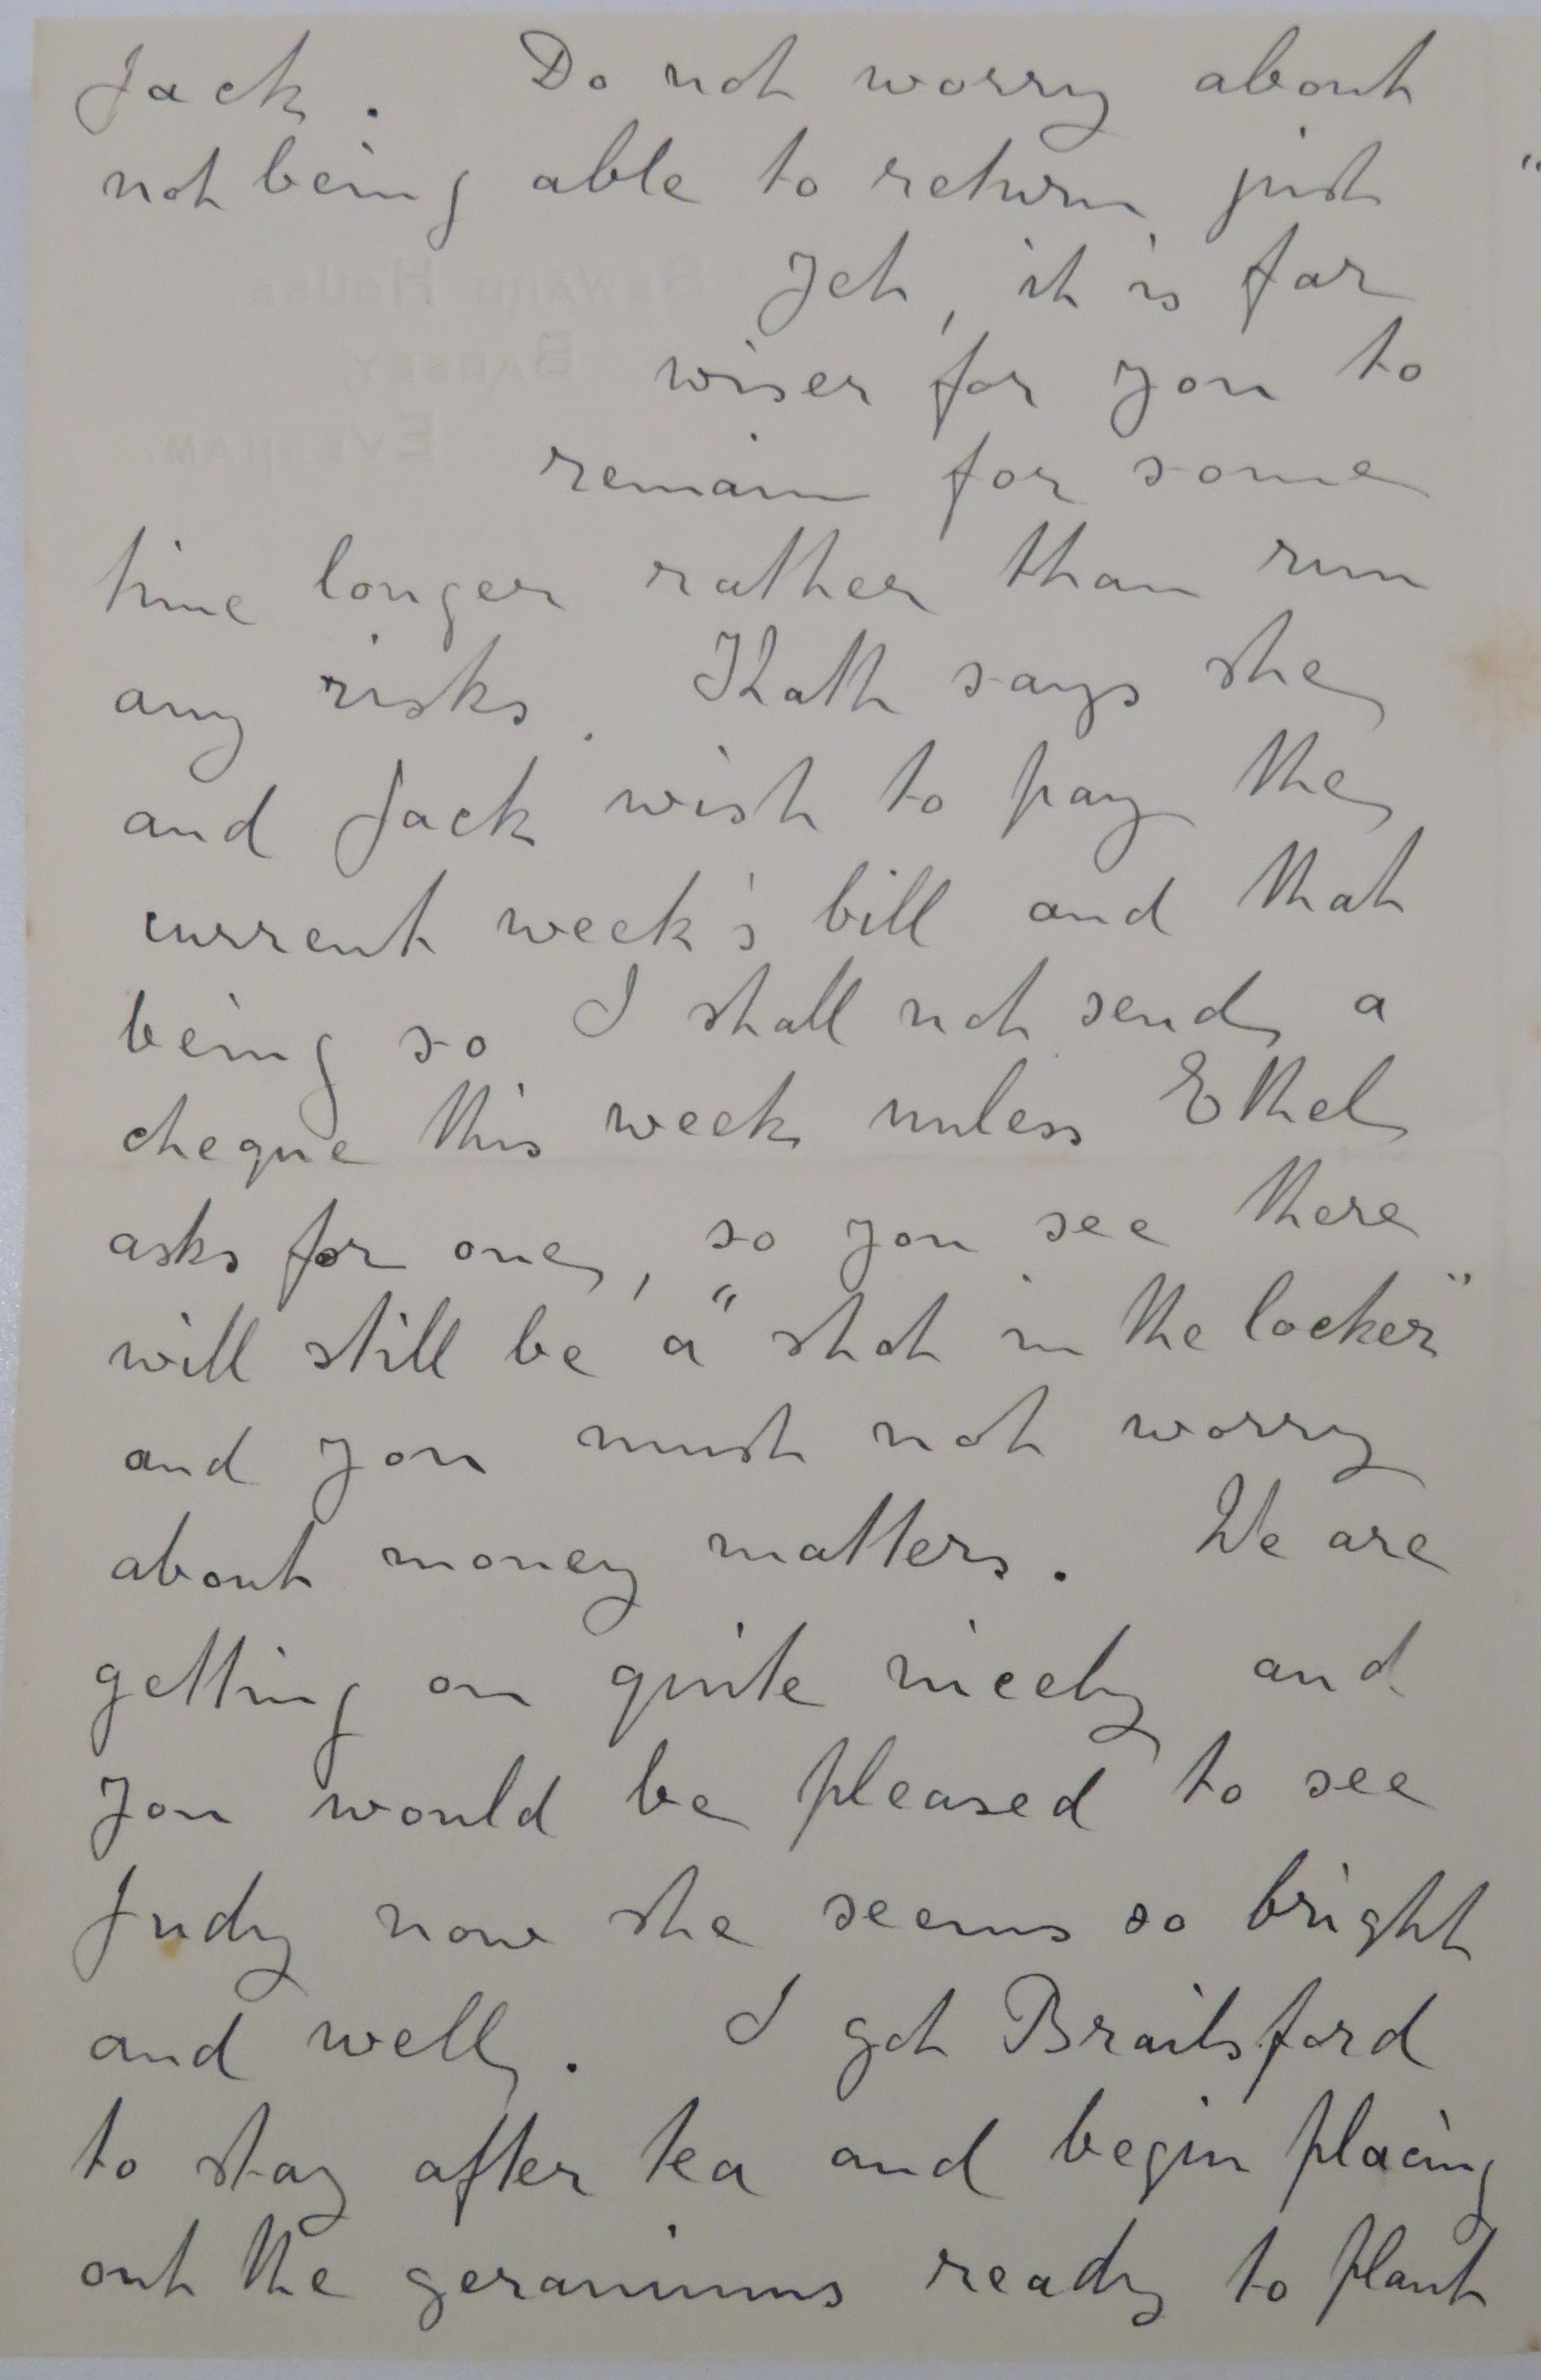 Jack. Do not worry about
not being able to return just
yet, it is far
wiser for you to
remain for some
time longer rather than run
any risks. Kath says she
and Jack wish to pay the
current week's bill and that
being so I shall not send a
cheque this week unless Ethel
asks for one, so you see there
will still be a "shot in the locker"
and you must not worry
about money matters. We are
getting on quite nicely and
you would be pleased to see
Judy now she seems so bright
and well. I got Brailsford
to stay after tea and begin placing
out the geraniums ready to plant
SEWARD HOUSE,
BADSEY,
EVESHAM.